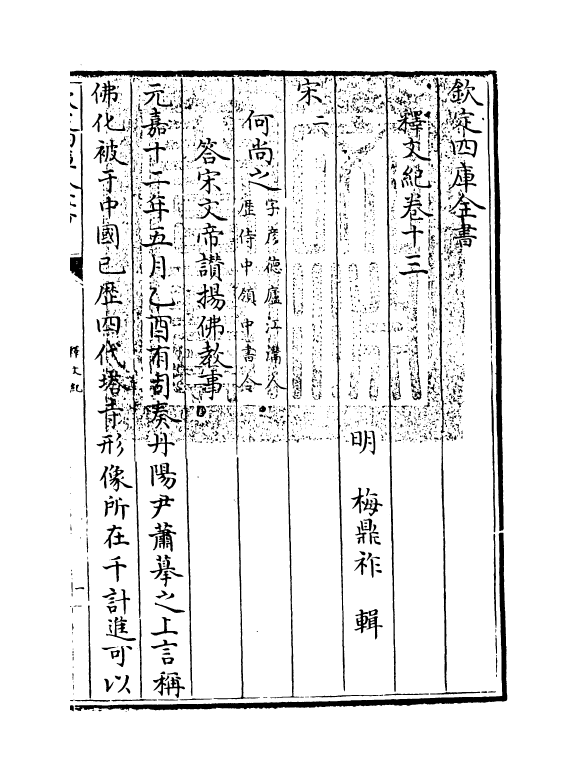 欽定四庫全書
釋文紀卷十三
明 梅鼎祚 輯
宋二
何尚之 字彦德廬江灊人
歴侍中領中書令
答宋文帝讃揚佛教事
元嘉十二年五月乙酉有司奏丹陽尹蕭摹之上言稱
佛化被于中國已歴四代塔寺形像所在千計進可以
釋文紀
一